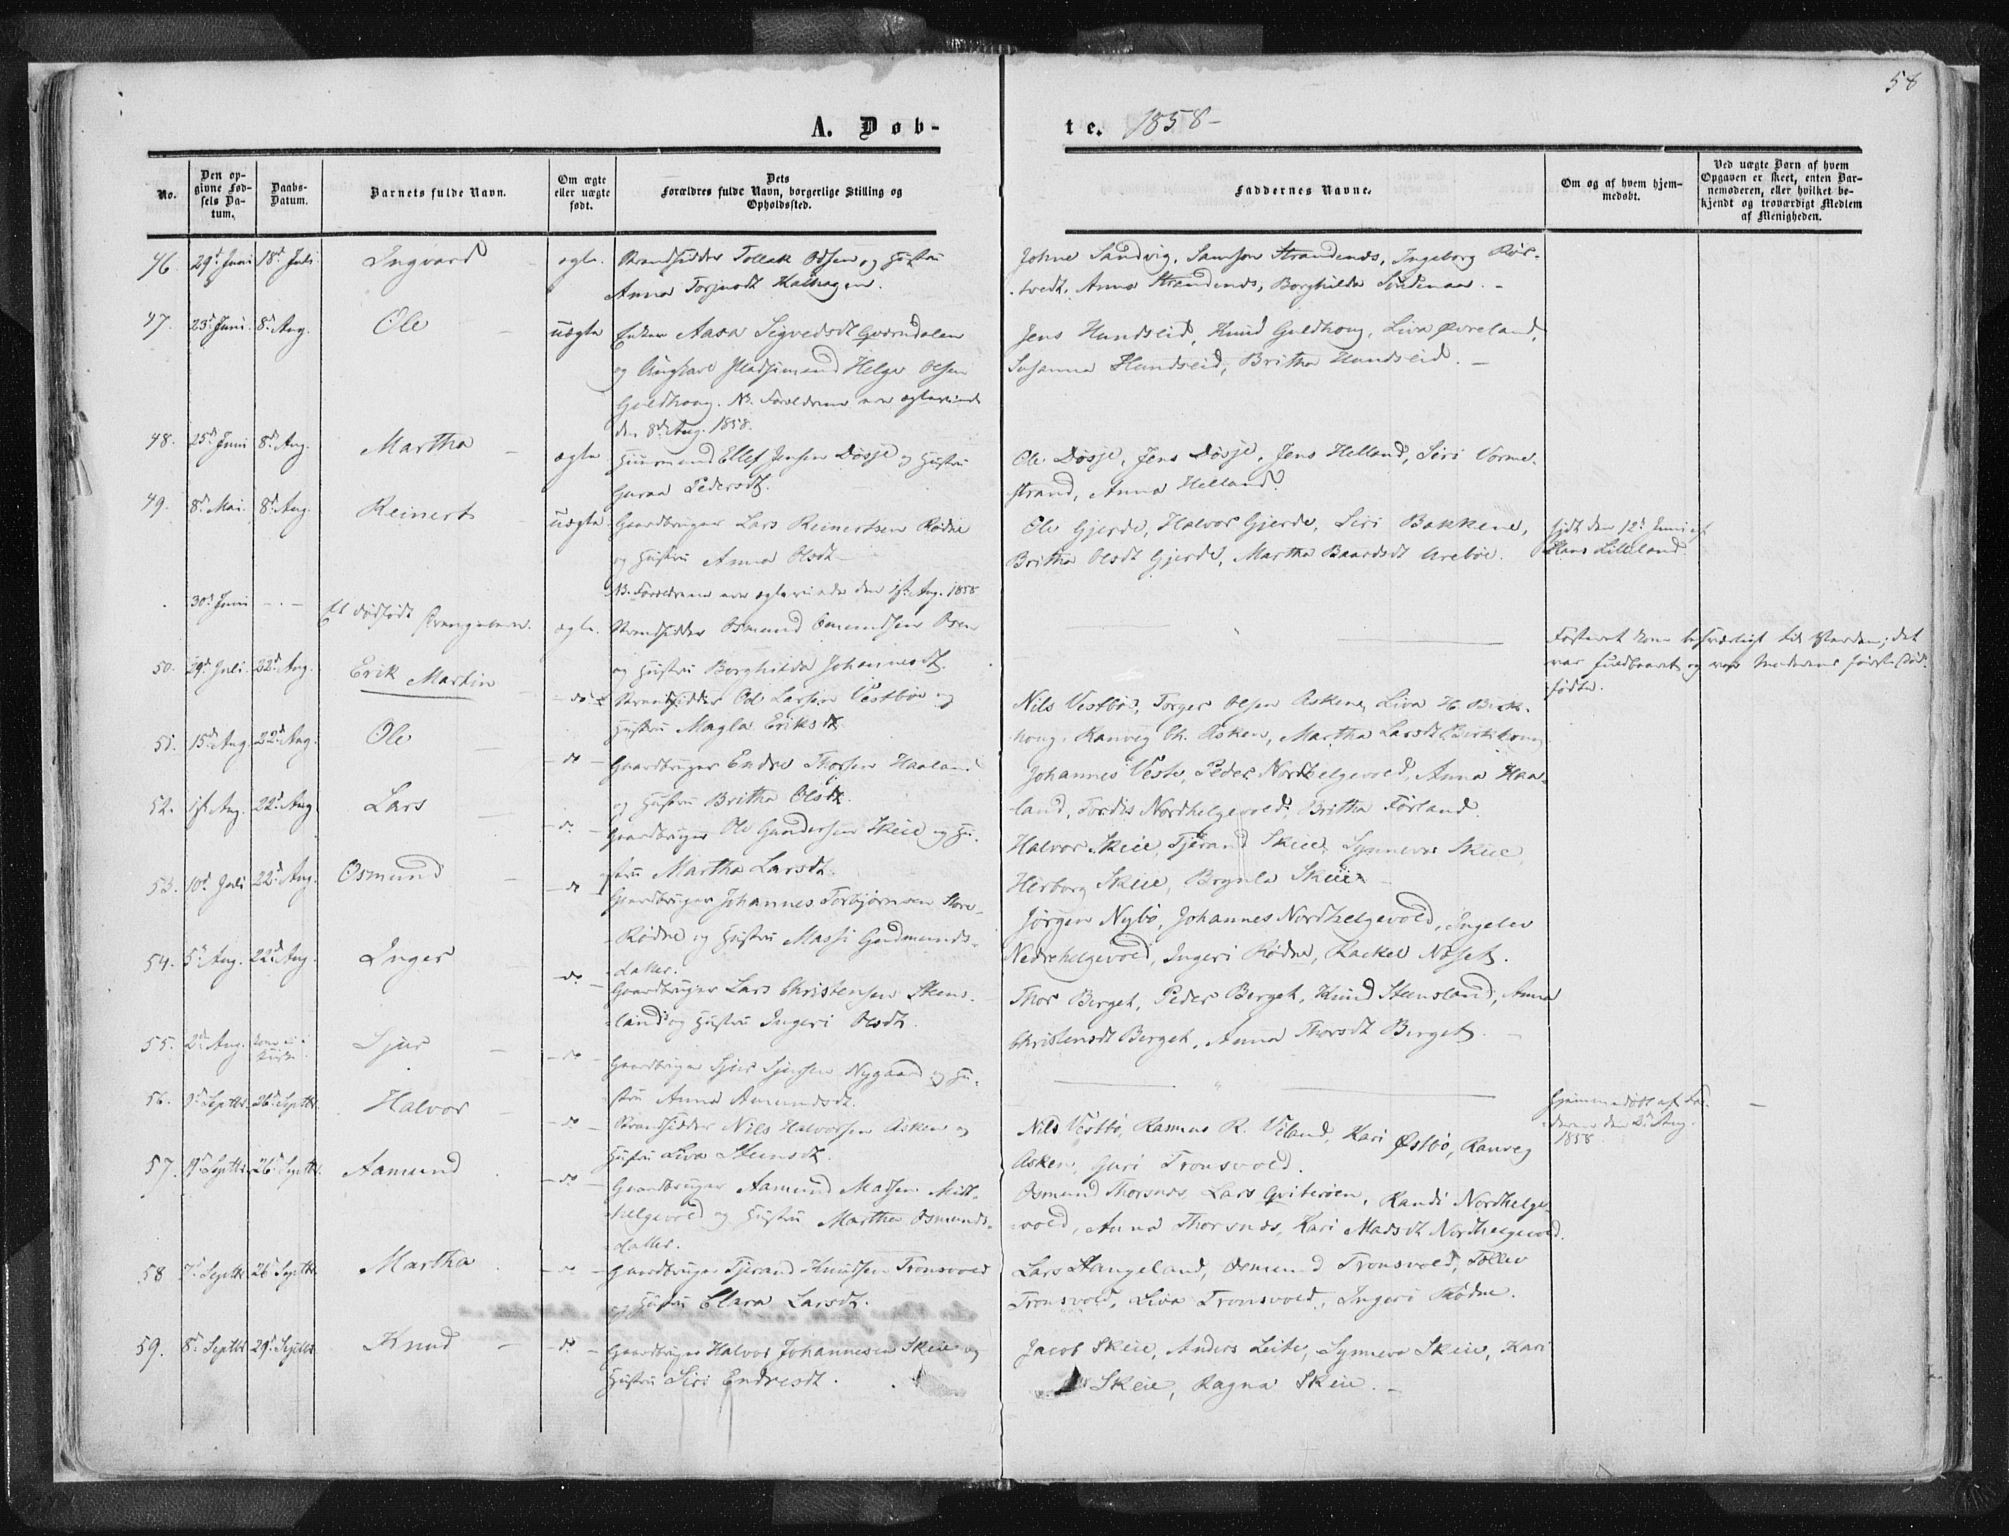 58
A. Døb-
te. 1858-
No.
Den opgivne Fødsels Datum.
Daabs-Datum.
Barnets fulde Navn.
Om ægte eller uægte født.
Dets Forældres fulde Navn, borgerlige Stilling og Opholdssted.
Faddernes Navne.
Om og af hvem hjemmedøbt.
Ved uægte Børn af hvem Opgaven er skeet, enten Barnemoderen, eller hvilket bekjendt og troværdigt Medlem af Menigheden.
46. 29d Juni 18d Juli Ingvard ægte. Strandsidder Tollak Olsen og Hustru
Anna Torjusdt Kalhagen.
Johne Sandvig, Samson Strandenes, Ingeborg
Anna Strandenes, Borghilda
47. 23d Juni. 8d Aug. Ole uægte Enken Aasa Sigvedsdt Qværndalen
og Ungkarl Helge Olsen
Guldhoug. NB. Forældrene ere ægteviede
den 8d Aug. 1858.
Jens Hundseid, Knud Guldhoug, Liva Øvreland,
Susanna Hundseid, Britha Hundseid. -
48. 25d Juni 8d Aug. Martha ægte Huusmand Ellef Jensen Døsje og Hustru
Guroa Pedersdt.
Ole Døsje, Jens Døsje, Jens Helland, Siri Vorme-
strand, Anna Helland.
49. 8d Mai. 8d Aug. Reinert uægte Gaardbruger Lars Reinertsen Rødne
og Hustru Anna Olsdt
NB. Forældrene ere ægteviede den 1st Aug. 1858
Ole Gjerde, Halvor Gjerde, Siri Bakkene,
Britha Olsdt Gjerde, Martha Baardsdt Arebøe.
hjdt den 12d Juni af
Hans Lilleland.
30d Juni Et dødfødt Drengebarn. ægte. Strandsidder Osmund Omundsen Osen
og Hustru Borghilda Johannesdt.
Fosteret kom besværligt til Verden; det
var fuldbaaret og var Moderens første Død-
fødte.
50. 29d Juli. 22d Aug. Erik Martin do Strandsidder Ole Larsen Vestbøe og
Hustru Magla Eriksdt.
Nils Vestbø, Torger Olsen Asken, Liva H. Birk-
houg. Ranveg Ch. Asken, Martha Larsdt Birkhoug
51. 15d Aug. 22d Aug. Ole do Gaardbruger Endre Thorsen Haaland
og Hustru Britha Olsdt.
Johannes Veste, Peder Nordhelgevold, Anna Haa-
land, Tordis Nordhelgevold, Britha Førland.
52. 1st Aug. 22d Aug Lars do Gaardbruger Ole Gundersen Skeie og Hu-
stru Martha Larsdt.
Halvor Skeie, Tjerand Skeie, Synneva Skeie,
Herborg Skeie, Brynla Skeie -
53. 10d Juli 22d Aug. Osmund do Gaardbruger Johannes Torbjørnsen Store-
Rødne og Hustru Massi Gudmunds-
datter.
Jørgen Nybø, Johannes Nordhelgevold, Ingelev
Nedrehelgevold, Ingeri Rødne, Rackel Næset.
54. 5d Aug. 22d Aug. Inger do Gaardbruger Lars Christensen Steens-
land og Hustru Ingeri Olsdt.
Thor Berget, Peder Berget, Knud Steensland, Anna
Christensdt Berget, Anna Thorsdt Berget. -
55. 2d Aug. Sjur do Gaardbruger Sjur Sjursen Nygaard og Hu-
stru Anna Amundsdt.
Hjemmedøbt af Fa-
deren den 2d Aug.
1858
56. 9d Septbr. 26d Septbr. Halvor do Strandsidder Nils Halvorsen Asken og
Hustru Liva Steensdt.
Nils Vestbø, Rasmus R. Viland, Kari Østbø, Ranveg
Asken, Guri Tronsvold.
57. 9d Septbr 26d Septbr. Aamund do Gaardbruger Aamund Madsen Midt-
helgevold og Hustru Martha Osmunds-
datter.
Osmund Thorsnes, Lars Qviterøen, Randi Nordhelge-
vold, Anna Thorsnes, Kari Madsdt Nordhelgevold.
58 7d Septbr. 26d Septbr. Martha Gaardbruger Tjerand Knudsen Tronsvold
og Hustru Clara Larsdt.
Lars Stangeland, Osmund Tronsvold, Tollev
Tronsvold, Liva Tronsvold, Ingeri Rødne.
59. 8d Septbr 29d Septbr. Knud do Gaardbruger Halvor Johannesen Skeie og
Hustru Siri Endresdt.
Jacob Skeie, Anders Leite, Synneva Skeie, Kari
Skeie, Ragna Skeie. -